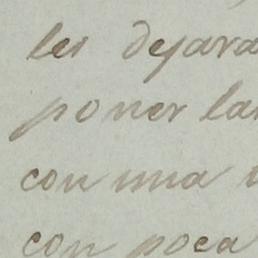 les dejara
poner la
con una
con poca